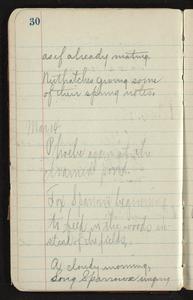 30
as if already mating.
Nuthatches giving some
of their spring notes.
Mar 18
Phoebe again at the
drained pond.
Fox Sparrows beginning
to feed in the woods in-
stead of the fields.
A cloudy morning,
Song Sparrows singing